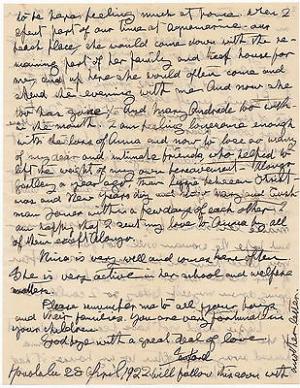 to be here feeling much at home. When I
spent part of our time at Aquamarine - our
beach place she would come down with the re-
maining part of her family and keep house for
me; and up here she would often come and
spend the evening with me And now she
too has gone. And Mary Andrade too with
in the month. I am feeling lonesome enough
with the loss of Anna and now to lose so many
of my dear and intimate friends who helped to
lift the weight of my own bereavement - Alonzo
Gartley a year ago, then
mas and New Years day and now Mary and Cush
man Jones within a few days of each other. I
am happy that I sent my love to Anna by all
of them except Alonzo.
Nina is very well and comes here often
She is very active in her school and welfare
matters.
Please remember me to all your boys
and their families. You are very fortunate in
your children.
Goodbye with a great deal of love
Honolulu 28 April 1922 will follow this soon with
another letter.